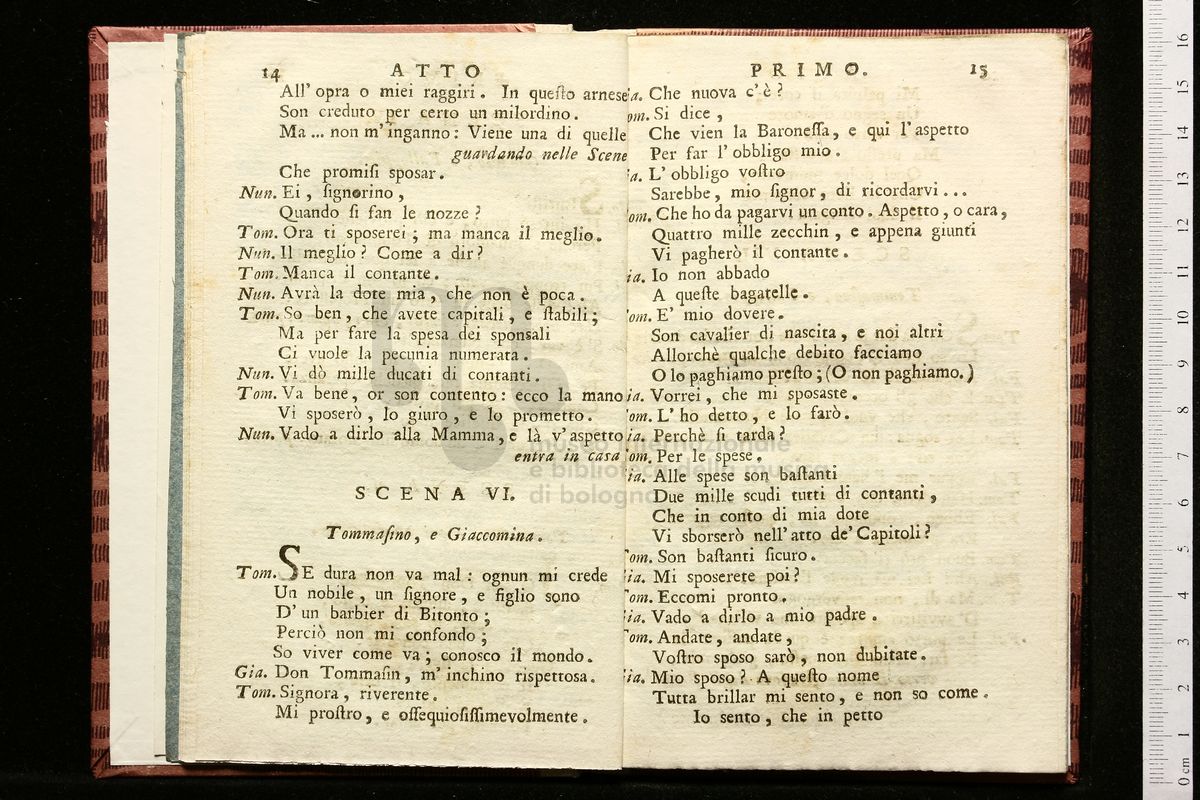 14 ATTO
All' opra o miei raggiri. In queſto arnese
Son creduto per certo un milordino.
Ma ... non m'inganno: Viene una di quelle
guardando nelle Scene
Che promiſi sposar.
Nun. Ei, ſignorino,
Quando ſi fan le nozze?
Tom. Ora ti sposerei; ma manca il meglio.
Nun. Il meglio? Come a dir?
Tom. Manca il contante.
Nun. Avrà la dote mia, che non è poca.
Tom. So ben, che avete capitali, e ſtabili;
Ma per fare la spesa dei sponsali
Ci vuole la pecunia numerata.
Nun. Vi dò mille ducati di contanti.
Tom. Va bene, or son contento: ecco la mano
Vi sposerò, lo giuro, e lo prometto.
Nun. Vado a dirlo alla Mamma, e là v'aspetto
entra in casa
SCENA VI.
Tommaſino, e Giaccomina.
Tom. SE dura non va mal: ognun mi crede
Un nobile, un ſignore, e figlio sono
D' un barbier di Bitonto;
Perciò non mi confondo;
So viver come va; conosco il mondo.
Gia. Don Tommaſin, m' inchino rispettosa.
Tom. Signora, riverente.
Mi proſtro, e oſſequioſiſſimevolmente.
PRIMO. 15
ia. Che nuova c'è?
om. Si dice,
Che vien la Baroneſſa, e qui l'aspetto
Per far l'obbligo mio.
ia. L' obbligo voſtro
Sarebbe, mio ſignor, di ricordarvi...
om. Che ho da pagarvi un conto. Aspetto, o cara,
Quattro mille zecchin, e appena giunti
Vi pagherò il contante.
ia. Io non abbado
A queſte bagatelle.
om. E' mio dovere.
Son cavalier di nascita, e noi altri
Allorchè qualche debito facciamo
O lo paghiamo preſto; (O non paghiamo.)
ia. Vorrei, che mi sposaste.
om. L' ho detto, e lo farò.
ia. Perchè ſi tarda?
om. Per le spese.
ia. Alle spese son baſtanti
Due mille scudi tutti di contanti,
Che in conto di mia dote
Vi sborserò nell'atto de' Capitoli?
om. Son baſtanti ſicuro.
ia. Mi sposerete poi?
Tom. Eccomi pronto.
ia. Vado a dirlo a mio padre.
om. Andate, andate,
Voſtro sposo sarò, non dubitate.
ia. Mio sposo? A queſto nome
Tutta brillar mi sento, e non so come.
Io sento, che in petto
museo internazionale
e biblioteca della musica
di bologna
0 cm 1 2 3 4 5 6 7 8 9 10 11 12 13 14 15 16